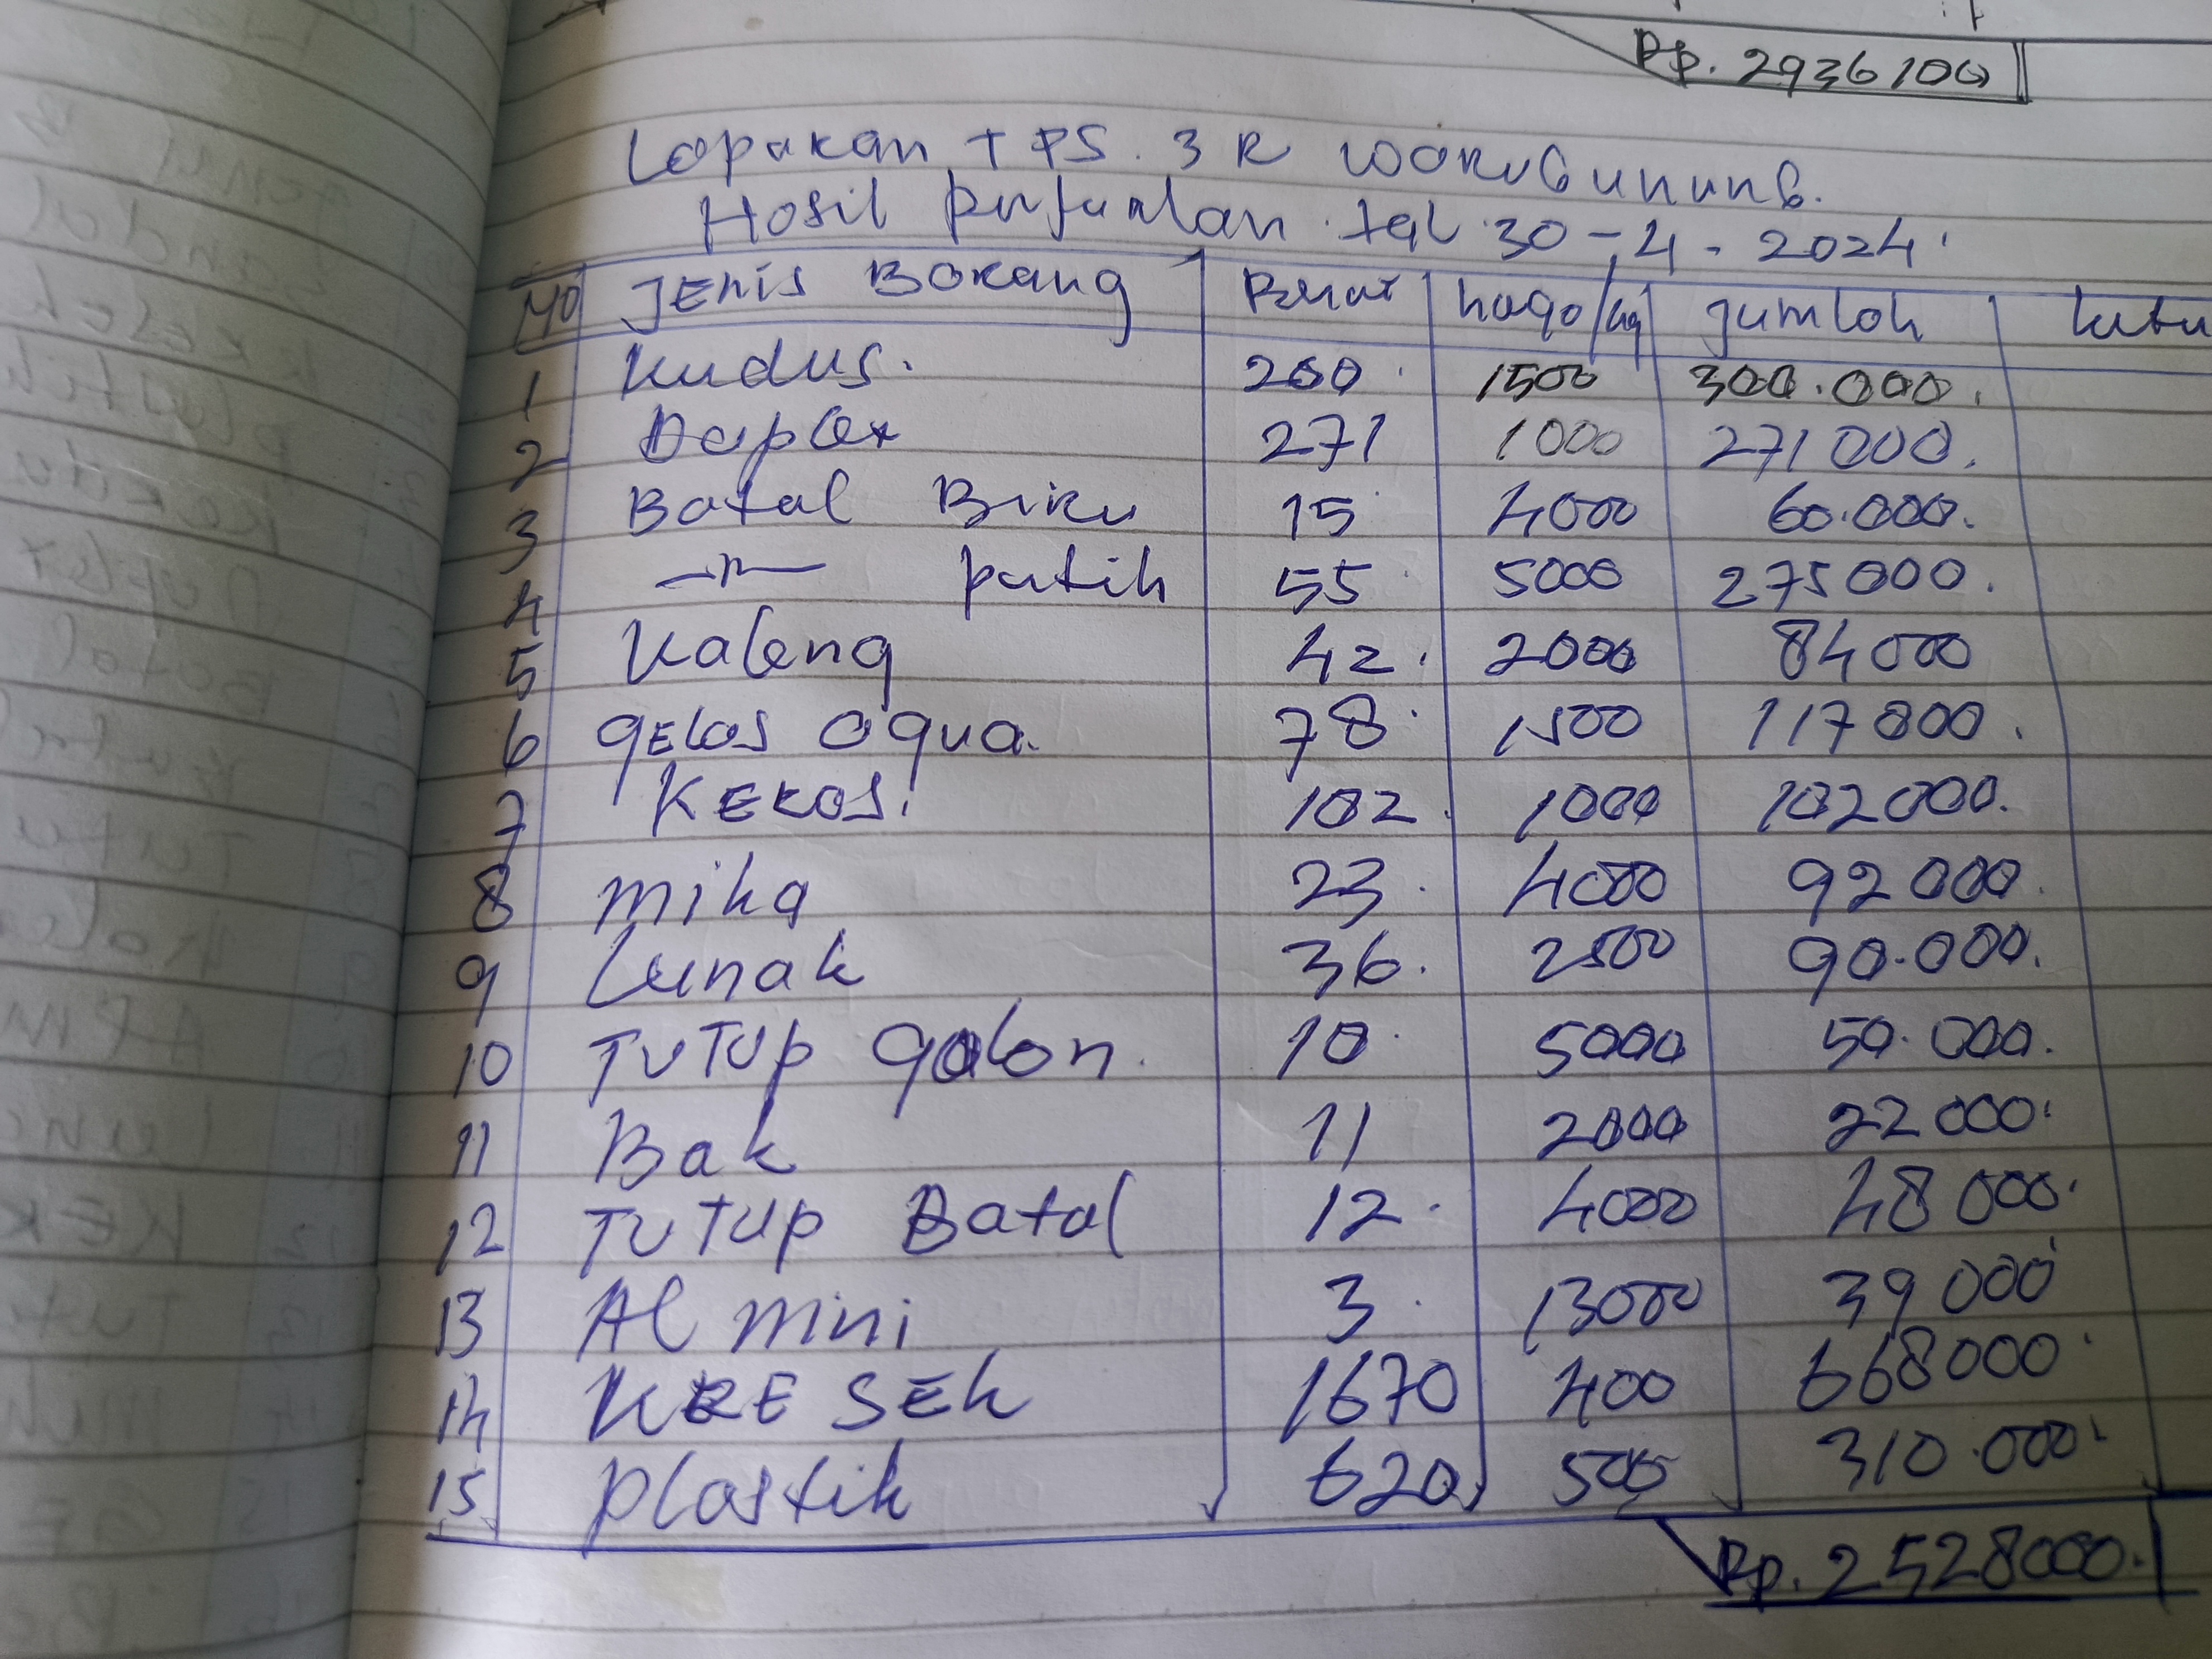 Rp. 2936100
Laporan TPS. 3 R WARUGUNUNG.
Hasil penjualan. tgl 30-4-2024.
NO JENIS BARANG Berat harga/kg jumlah
1 Kudus. 200 1500 300.000.
2 Duplex 271 1000 271000.
3 Botol Biru 15 4000 60.000.
4 —"— putih 55 5000 275000.
5 Kaleng 42 2000 84000
6 gelas aqua. 78 1500 117000.
7 KERAS. 102 1000 102000.
8 mika 23 4000 92000.
9 Lunak 36 2500 90.000.
10 TUTUP galon. 10 5000 50.000.
11 Bak 11 2000 22000.
12 TUTUP Botol 12 4000 48000.
13 Al mini 3 13000 39000
14 KRESEK 1670 400 668000
15 plastik 620 500 310.000
Rp. 2528000.